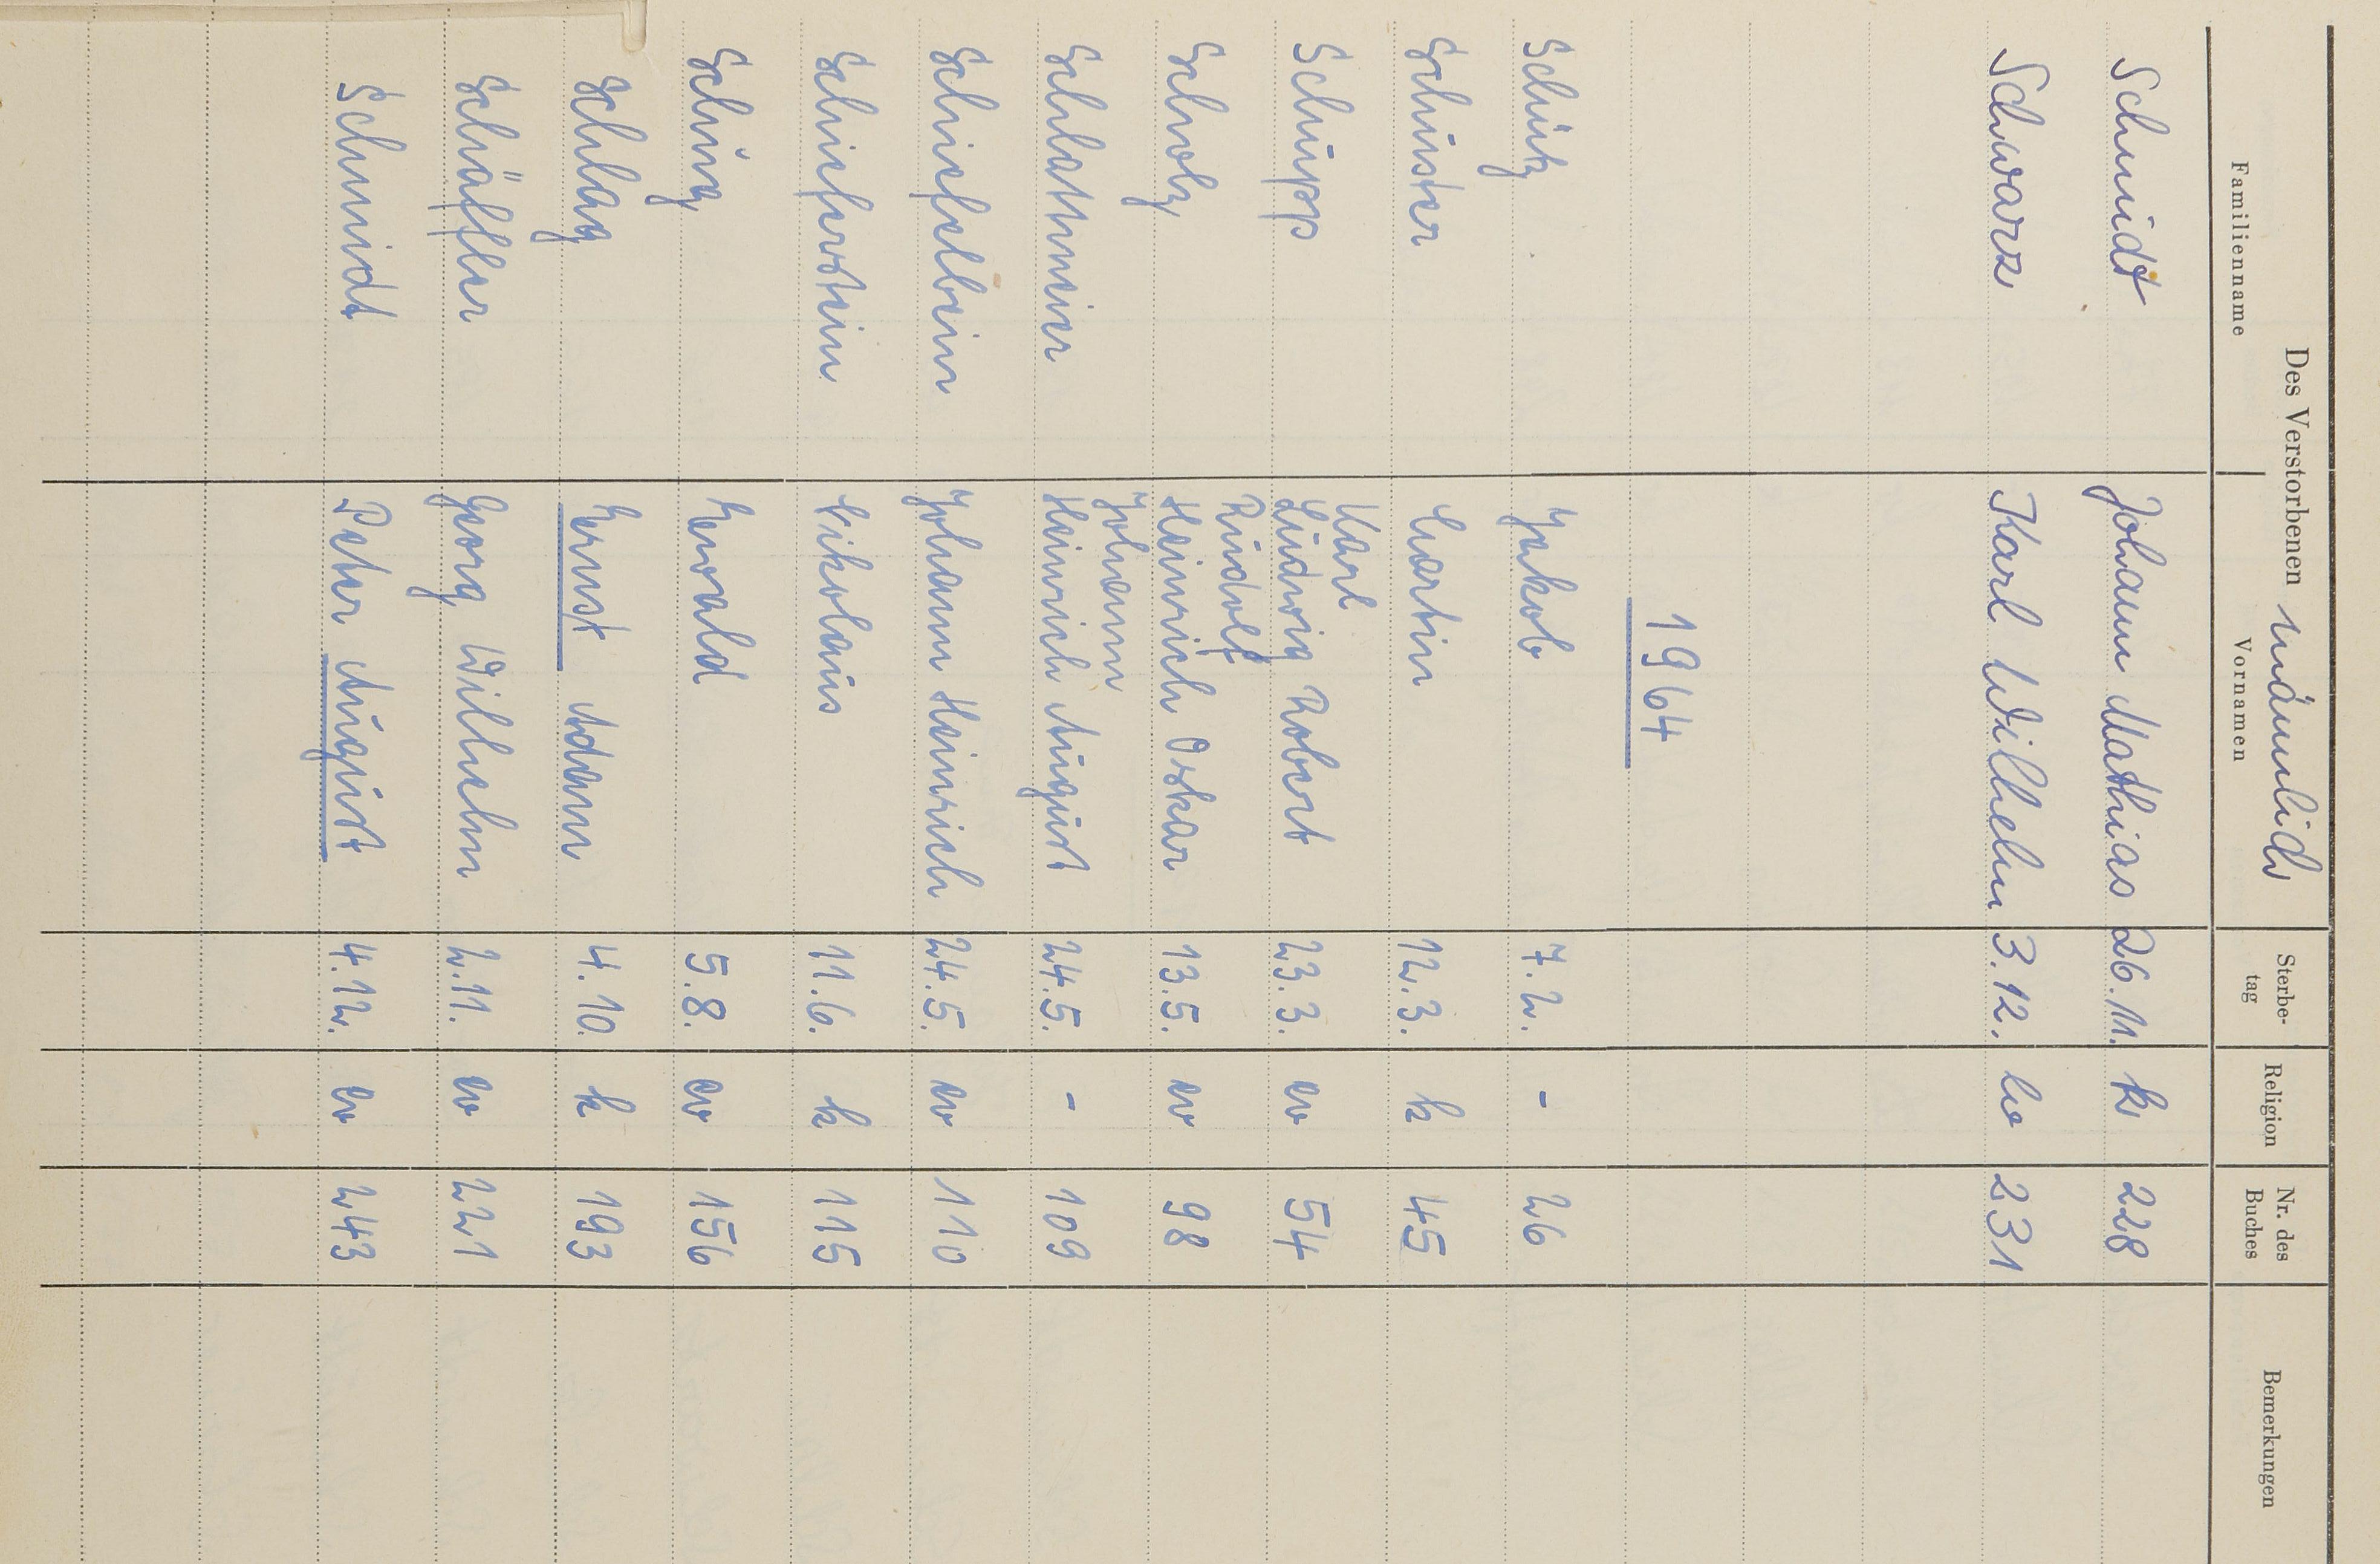 Des Verstorbenen männlich
Familienname Vornamen Sterbe-tag Religion Nr. des Buches Bemerkungen
Schmidt Johann Mathias 26.11. k 228
Schwarz Karl Wilhelm 3.12. ev 231
1964
Schütz Jakob 7.2. - 26
Schuster Martin 12.3. k 45
Karl
Schupp Ludwig Robert 23.3. ev 54
Rudolf
Scholz Heinrich Oskar 13.5. ev 98
Johann
Schlattmeier Heinrich August 24.5. - 109
Schiefelbein Johann Heinrich 24.5. ev 110
Schieferstein Nikolaus 11.6. k 115
Schug Ewald 5.8. ev 156
Schlag Ernst Adam 4.10. k 193
Schäffer Georg Wilhelm 2.11. ev 221
Schmidt Peter August 4.12. ev 243